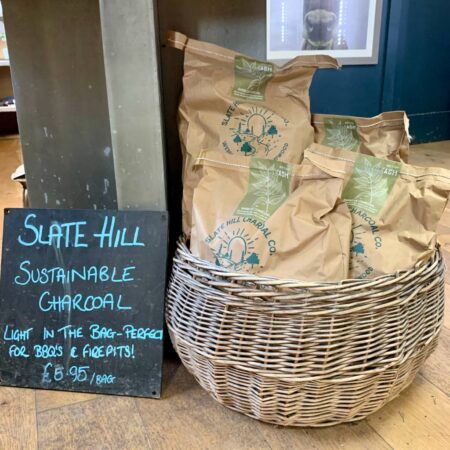 SLATE HILL
SUSTAINABLE
CHARCOAL
LIGHT IN THE BAG-PERFECT
FOR BBQ'S & FIREPITS!
£6.95/BAG
ASH
SLATE HILL
SLATE HILL
CO.
ASH
SLATE HILL CHARCOAL CO.